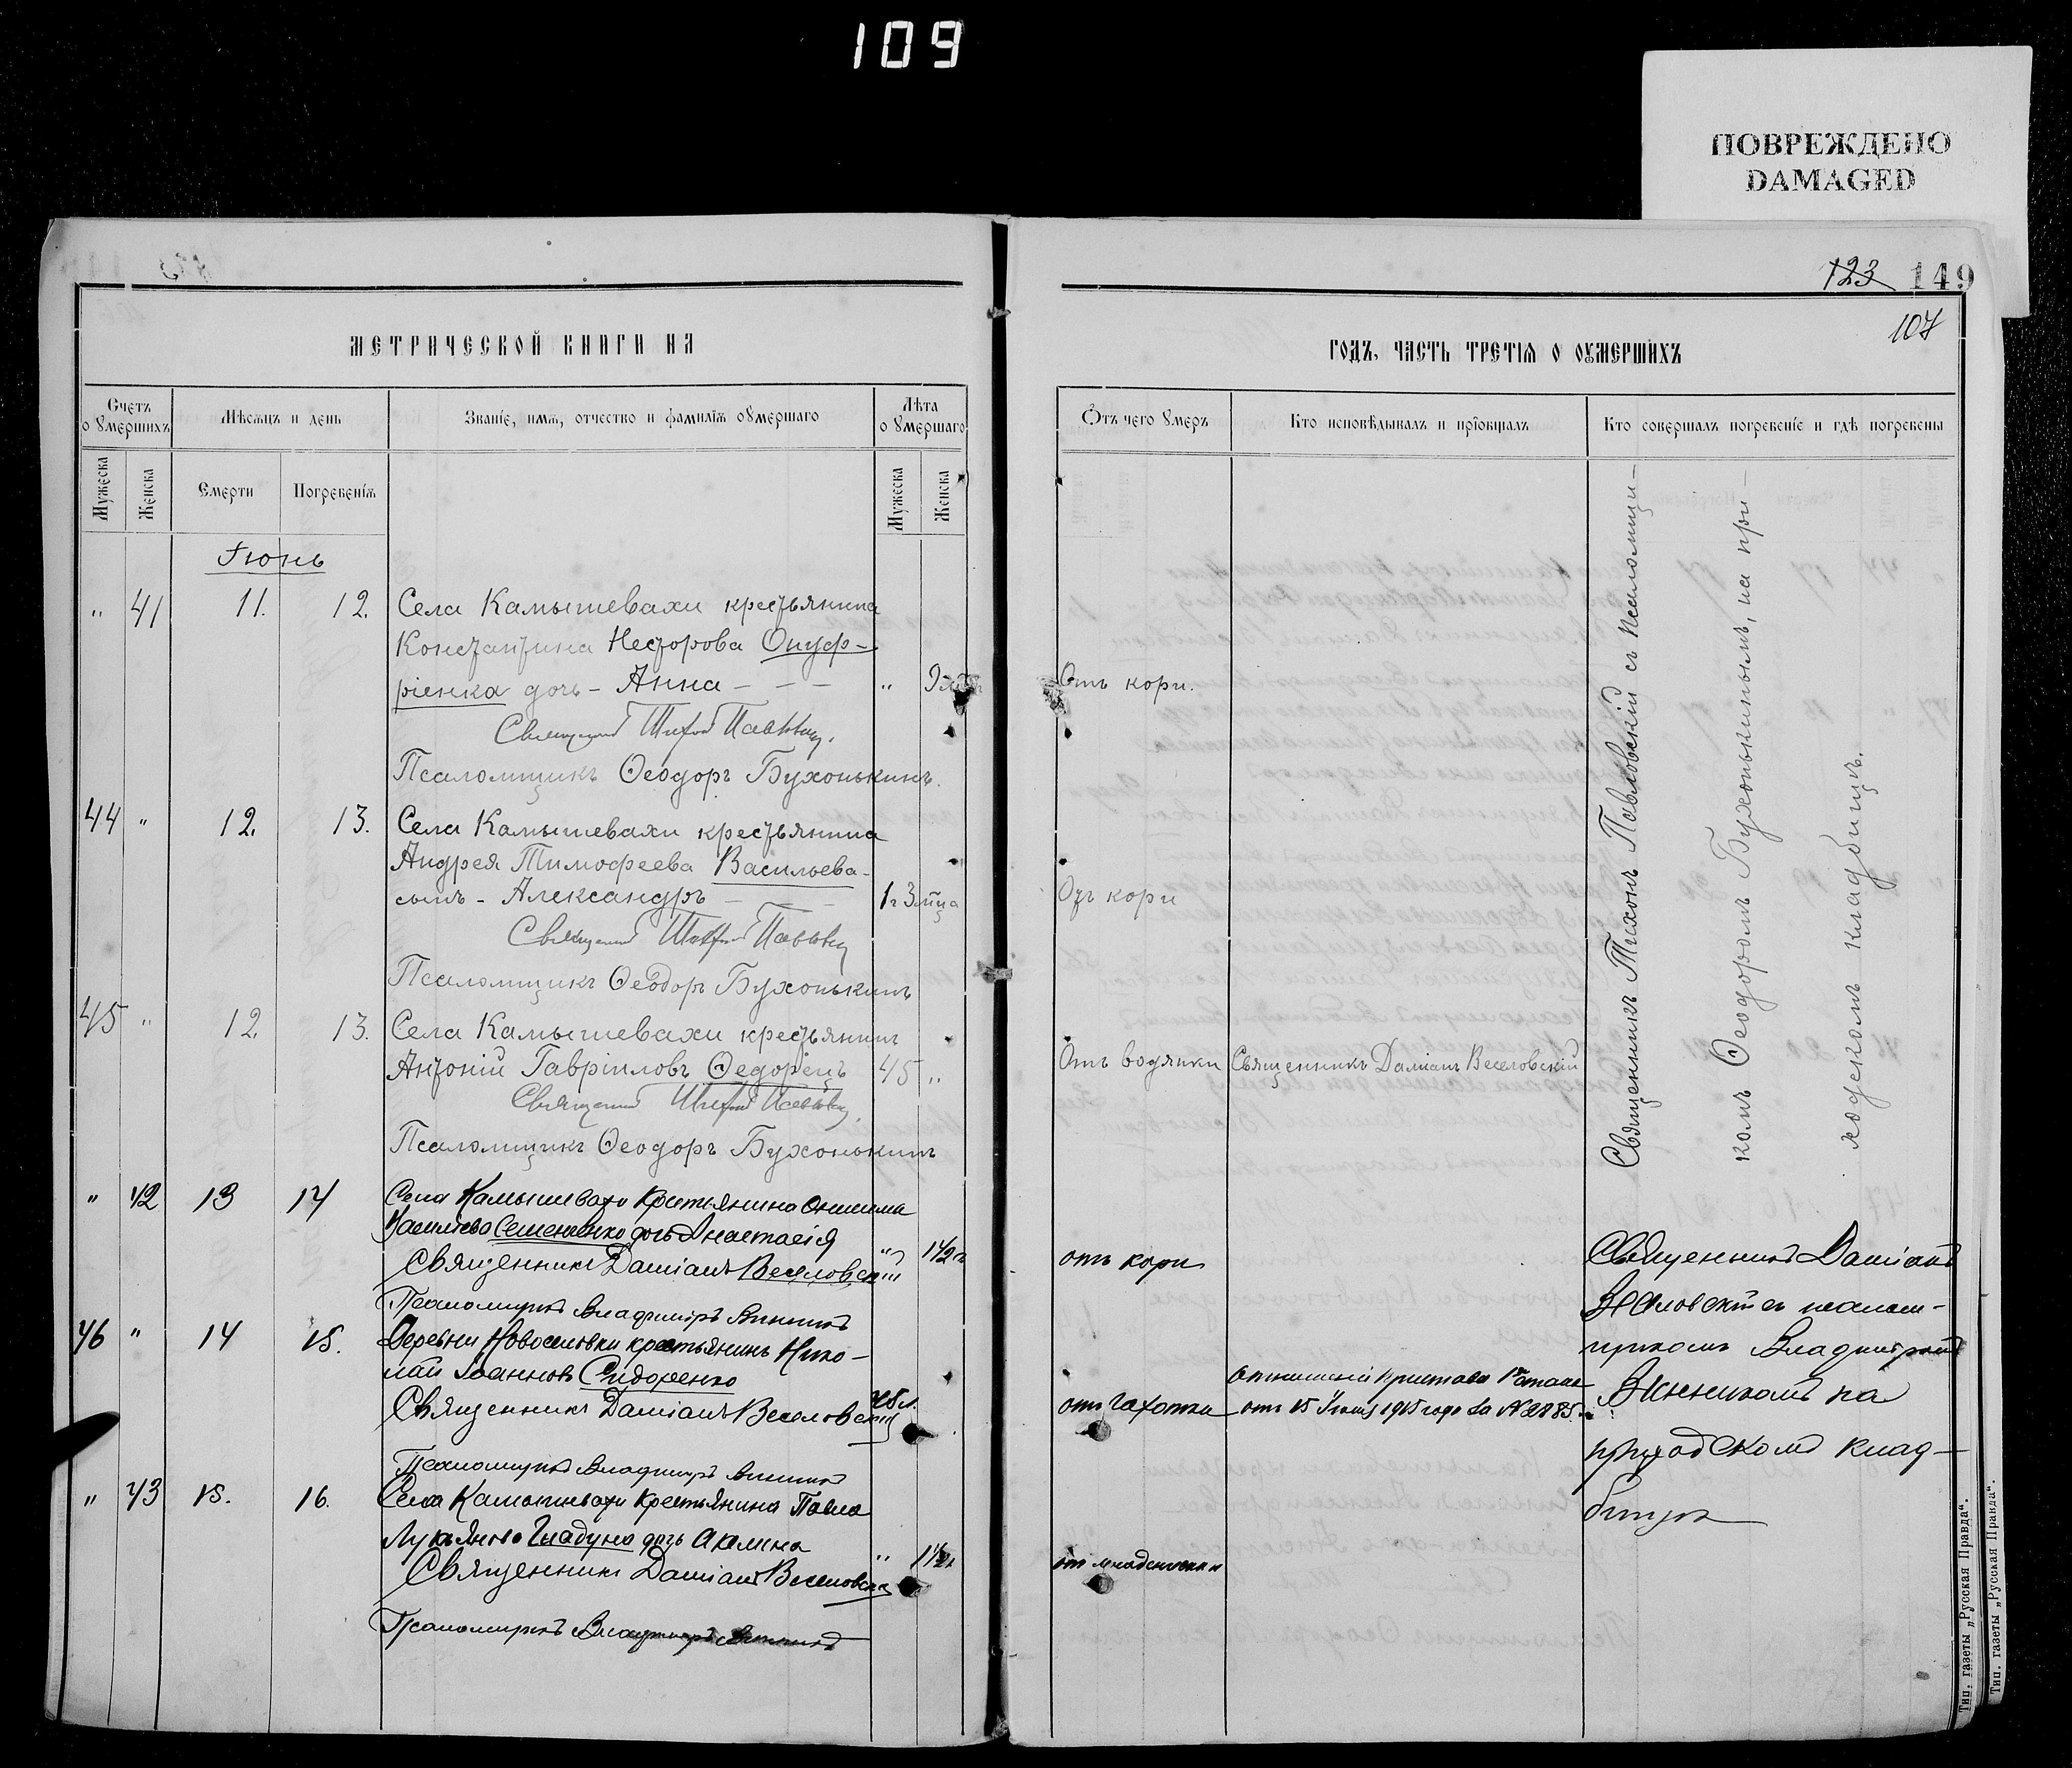 109
ПОВРЕЖДЕНО
DAMAGED
123 149
107
МЕТРИЧЕСКОЙ КНИГИ НА
Счетъ о умершихъ
Мѣсяцъ и день
Званіе, имя, отчество и фамилія оумершаго
Лѣта оумершаго
Мужеска
Женска
Смерти
Погребенія
Мужеска
Женска
Іюнь
" 41 11. 12. Села Камышевахи крестьянина
Константина Несторова Онуф-
ріенка дочь - Анна - - - "
Священникъ Тихонъ Павловскій
Псаломщикъ Ѳеодоръ Бухонькинъ.
44 " 12. 13. Села Камышевахи крестьянина
Андрея Тимофеева Васильева-
сынъ - Александръ - - 1 г 3 м-ца
Священникъ Тихонъ Павловскій
Псаломщикъ Ѳеодоръ Бухонькинъ
45 " 12. 13. Села Камышевахи крестьянинъ
Антоній Гавріиловъ Ѳедорецъ 45 "
Священникъ Тихонъ Павловскій
Псаломщикъ Ѳеодоръ Бухонькинъ
" 42 13 14 Села Камышевахи крестьянина Онисима
Василіева Семененко дочь Анастасія " 1½ г
Священникъ Даміанъ Веселовскій
Псаломщикъ Владиміръ Винникъ
46 " 14 15. Деревни Новоселовки крестьянинъ Нико-
лай Іоанновъ Сидоренко
Священникъ Даміанъ Веселовскій
Псаломщикъ Владиміръ Винникъ
" 43 15. 16. Села Камышевахи крестьянина Павла
Лукьянова Гладуна дочь Акилина "
Священникъ Даміанъ Веселовскій
Псаломщикъ Владиміръ Винникъ
ГОДЪ, ЧАСТЬ ТРЕТІЯ О ОУМЕРШИХЪ
Отъ чего умеръ
Кто исповѣдывалъ и пріобщалъ
Кто совершалъ погребеніе и гдѣ погребены
Отъ кори.
Отъ кори
Отъ водянки Священникъ Даміанъ Веселовскій
отъ кори
отъ чахотки
отъ 15 Іюня 1915 года за № 2885
отъ младенческой
Священникъ Тихонъ Павловскій съ псаломщи-
комъ Ѳеодоромъ Бухонькинымъ, на при-
ходскомъ кладбищѣ.
Священникъ Даміанъ
Веселовскій съ псалом-
щикомъ Владиміромъ
Винникомъ на
приходскомъ клад-
бищѣ
Тип. газеты „Русская Правда“.
Тип. газеты „Русская Правда“.